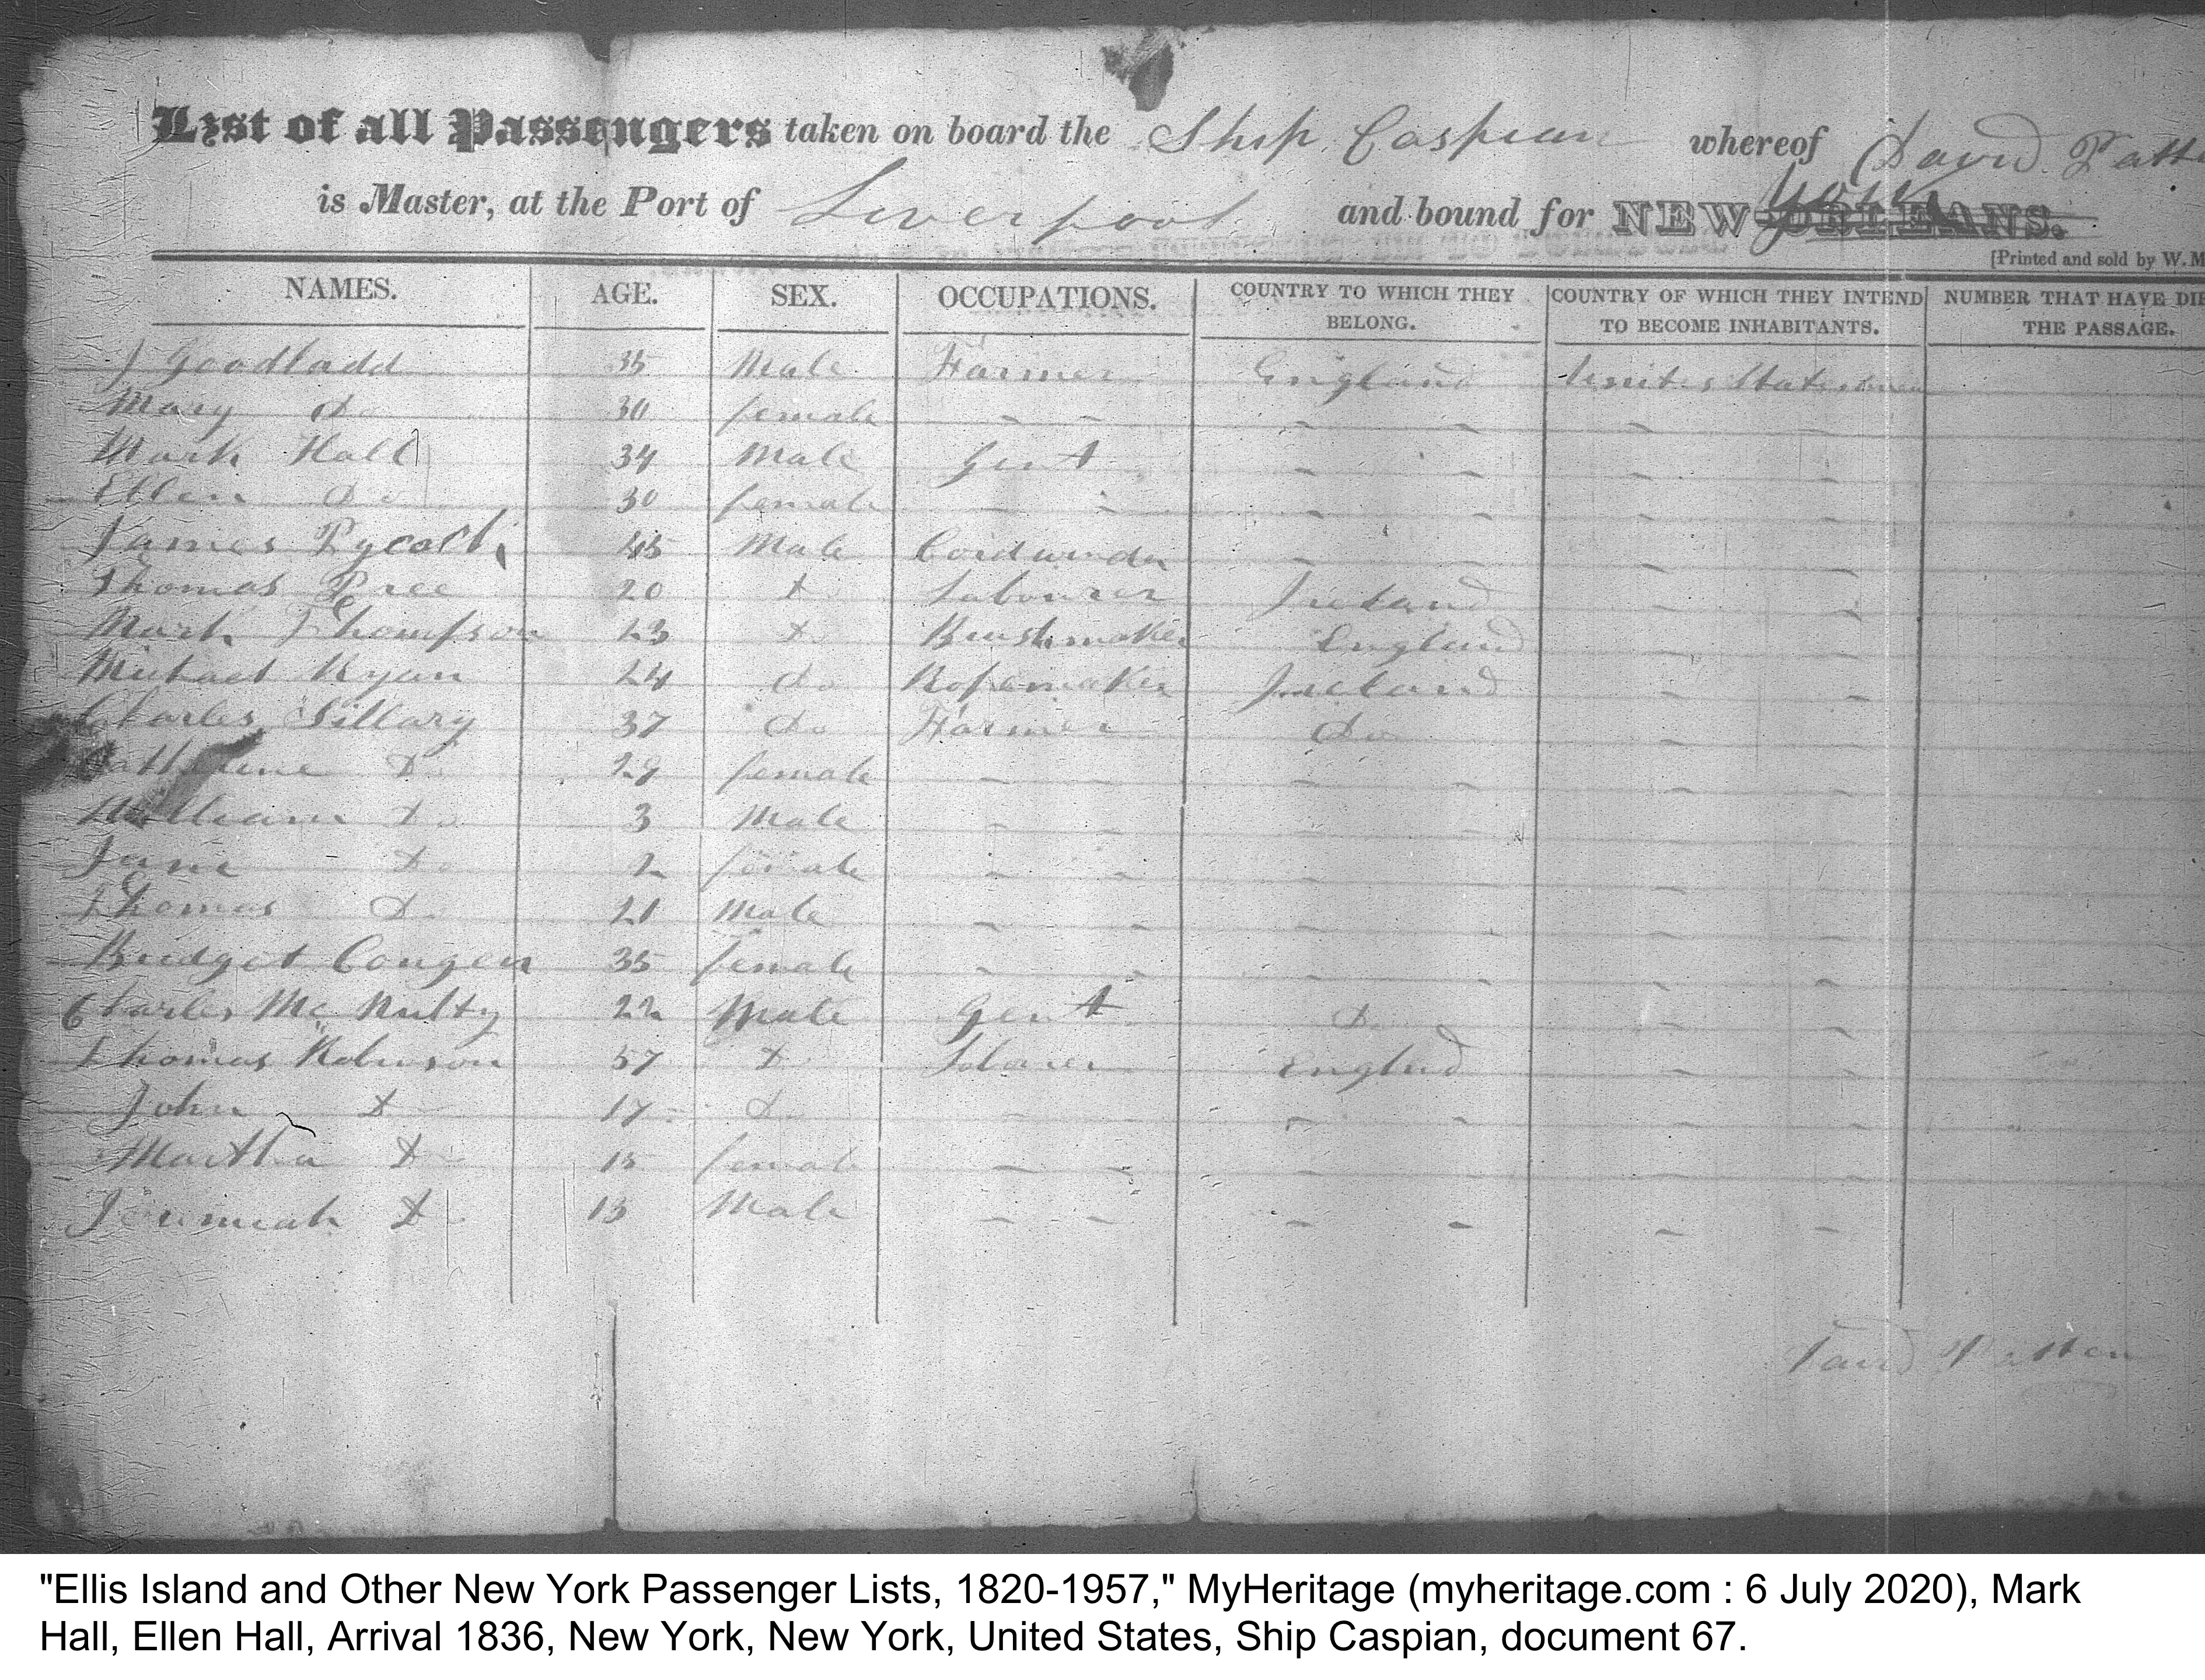 List of all Passengers taken on board the Ship Caspian whereof David Patt
is Master, at the Port of Liverpool and bound for NEW ORLEANS. York
[Printed and sold by W. M
NAMES. AGE. SEX. OCCUPATIONS. COUNTRY TO WHICH THEY BELONG. COUNTRY OF WHICH THEY INTEND TO BECOME INHABITANTS. NUMBER THAT HAVE DIE THE PASSAGE.
J Goodladd 35 Male Farmer England United States
Mary Do 30 female - - - - - -
Mark Hall 34 Male Gent - - - -
Ellen Do 30 female - - - - - -
James 45 Male - - - -
Thomas Pree 20 Do Labourer Ireland - -
Mark Thompson 23 Do Brushmaker England - -
Michael Ryan 24 do Ropemaker Ireland - -
Charles Sillary 37 do Farmer Do - -
Catherine Do 29 female - - - - - -
William Do 3 Male - - - - - -
Jane Do 2 female - - - - - -
Thomas Do 21 Male - - - - - -
Bridget Congen 35 female - - - - - -
Charles Mc Nulty 22 Male Gent Do - -
Thomas Robinson 57 Do England - -
John Do 17 Do - - - - - -
Martha Do 15 female - - - - - -
Jeremiah Do 13 Male - - - - - -
David Patten
"Ellis Island and Other New York Passenger Lists, 1820-1957," MyHeritage (myheritage.com : 6 July 2020), Mark
Hall, Ellen Hall, Arrival 1836, New York, New York, United States, Ship Caspian, document 67.